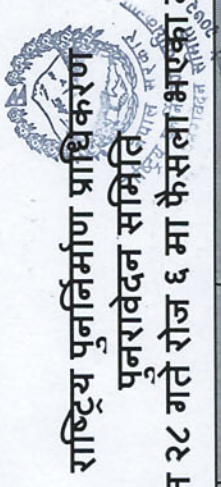 राष्ट्रिय पुनर्निर्माण प्राधिकरण
पुनरावेदन समिति
२८ गते रोज ६ मा फैसला भएका